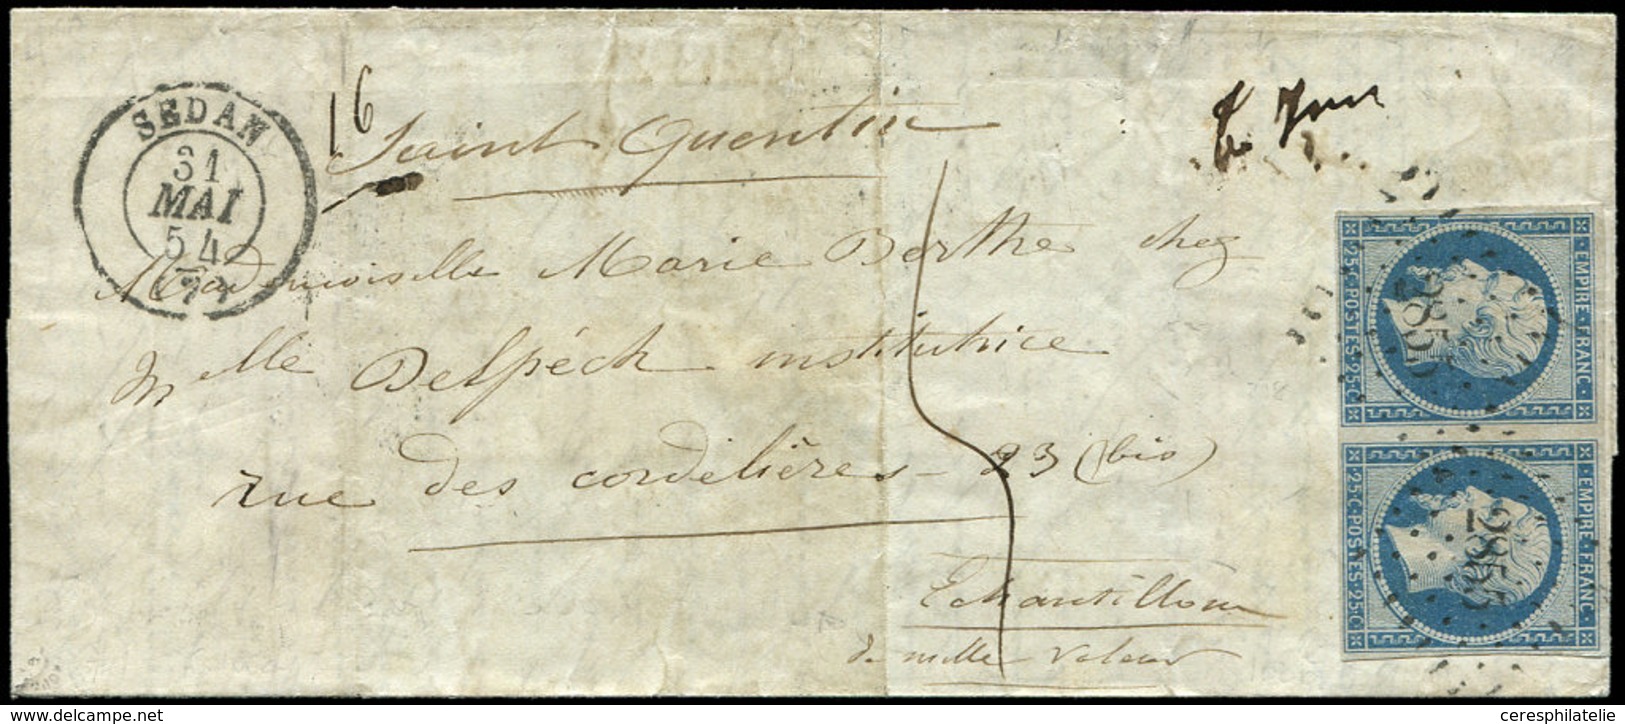 SEDAN
31
MAI
54
16
Saint Quentin
Mademoiselle Marie Berthe chez
Melle Delpéch institutrice
rue des cordelières - 23 (bis)
Echantillon
de nulle valeur
25 C · POSTES · 25 C
EMPIRE · FRANC ·
2855
25 C · POSTES · 25 C
EMPIRE · FRANC ·
2855
www.delcampe.net
ceresphilatelie